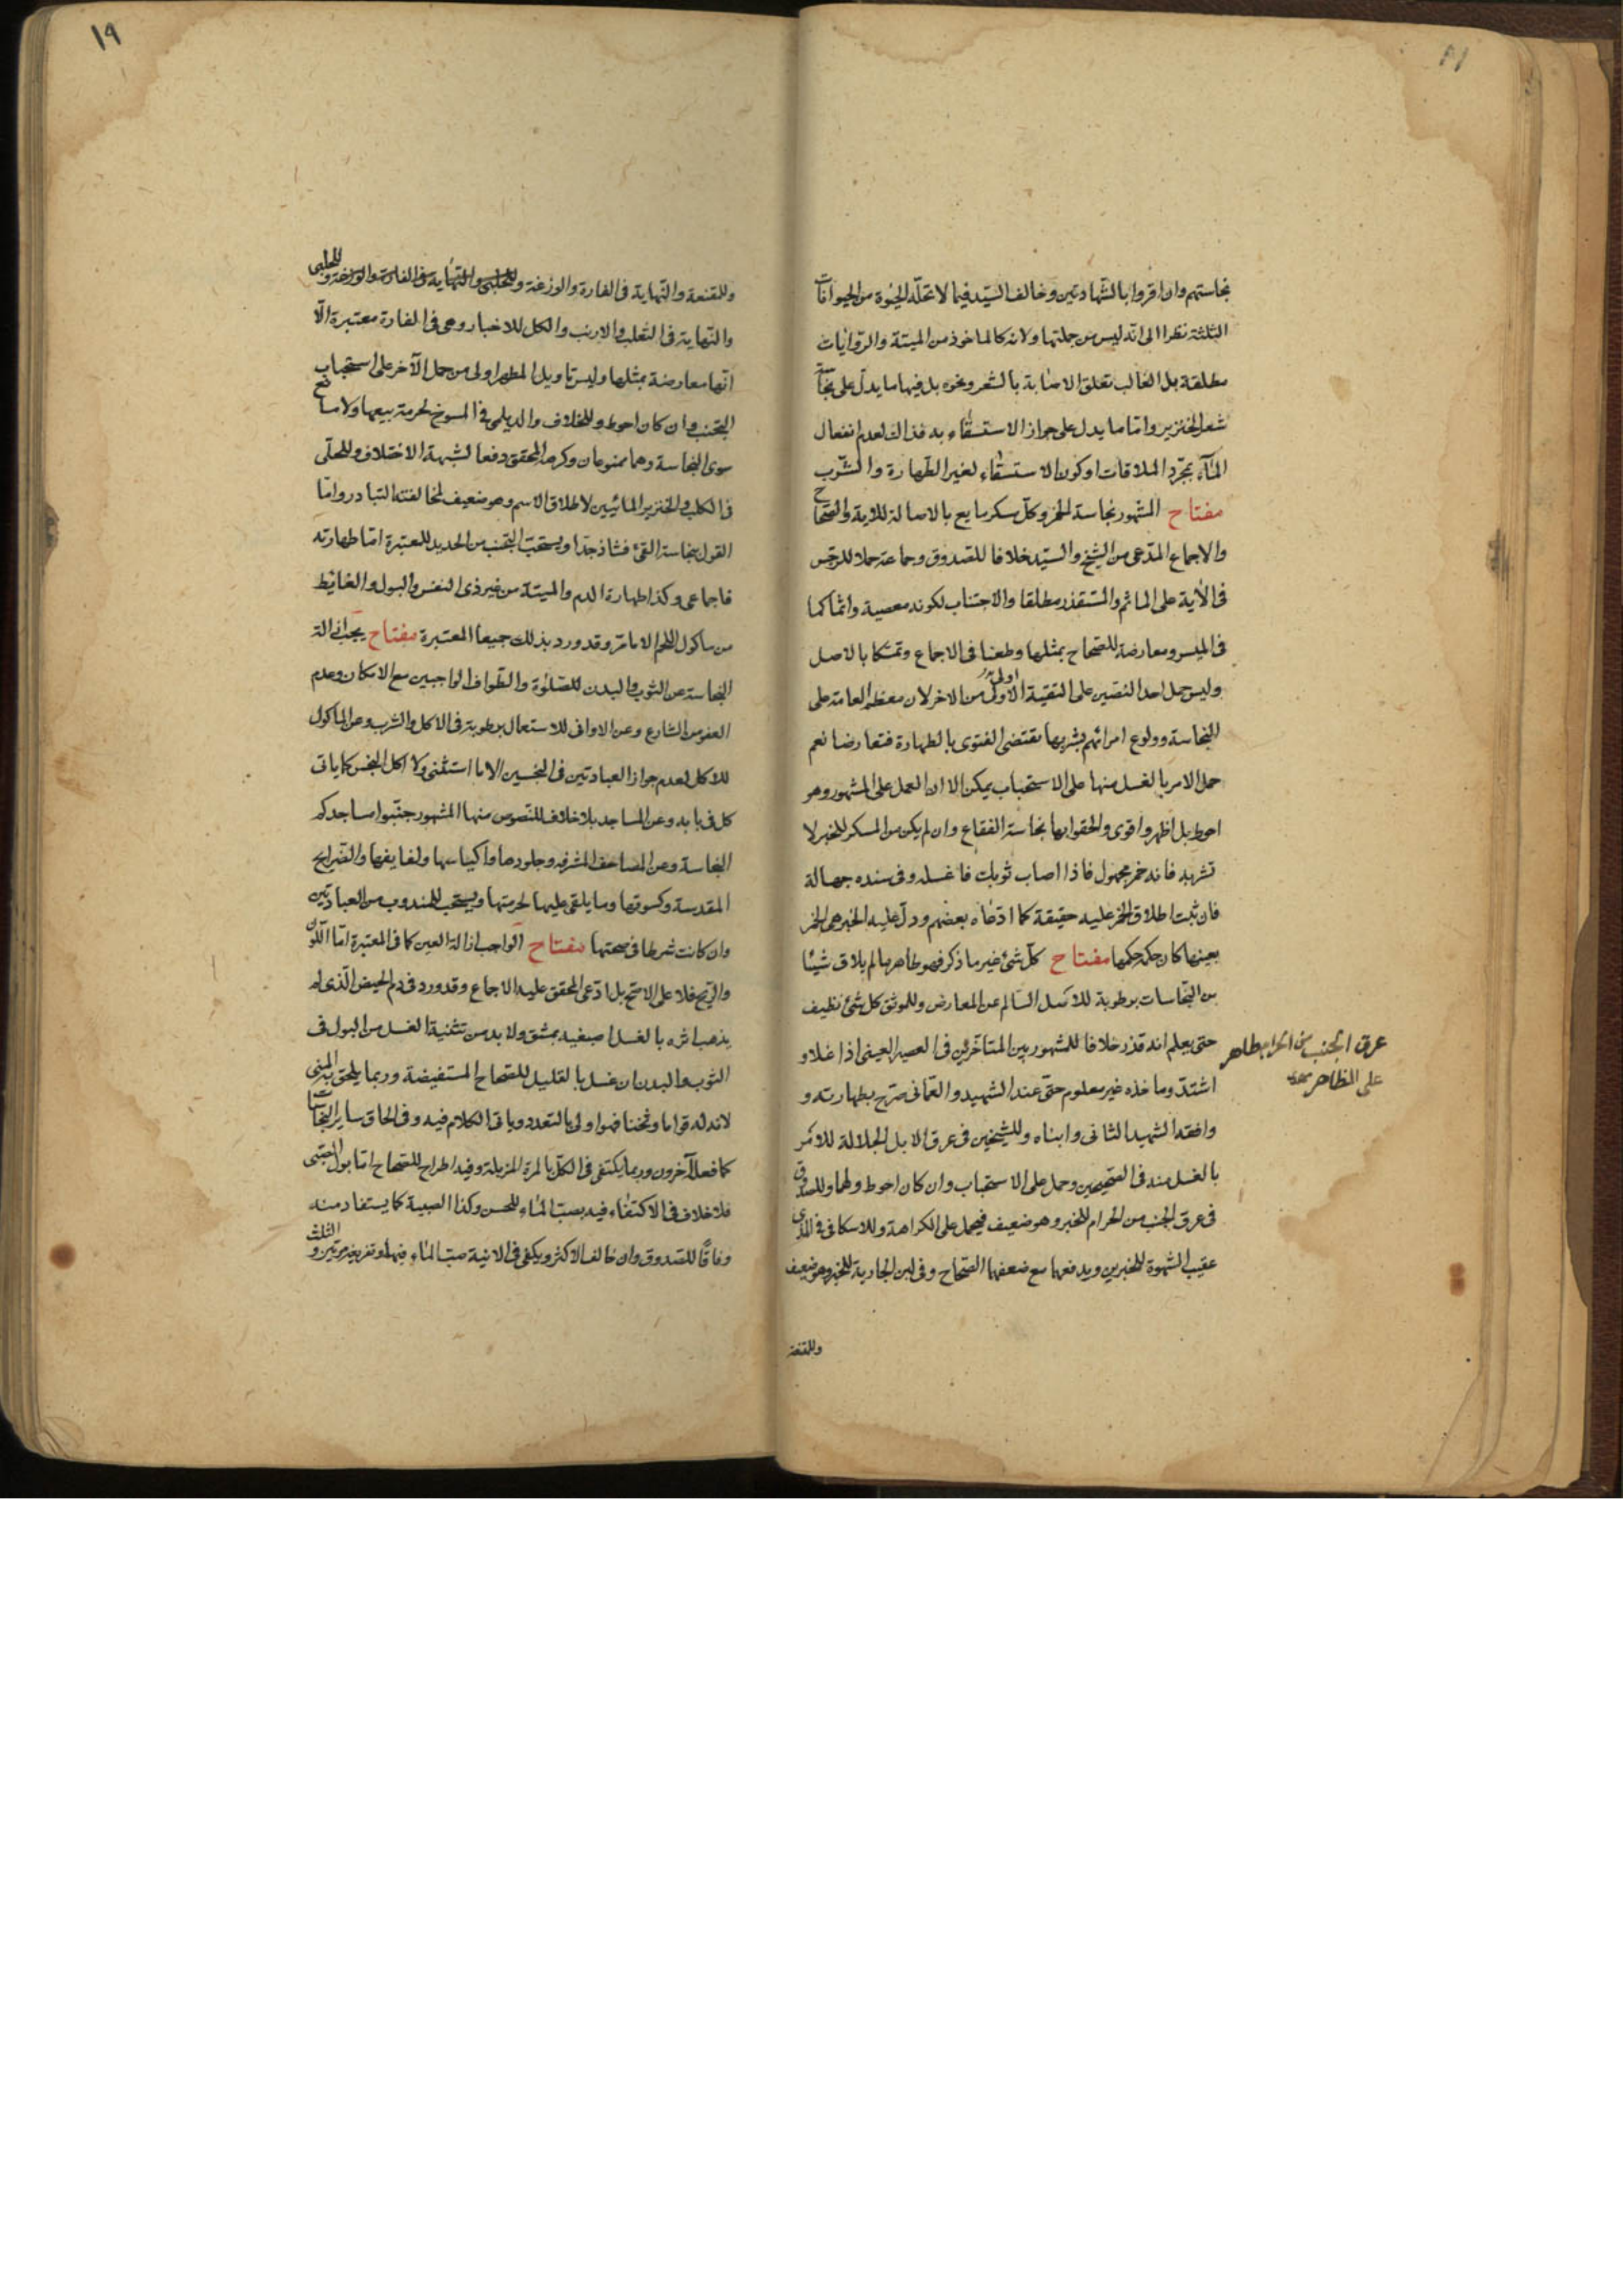 نجاستهم وان اقروا بالشهادتين وخالف السيد فيما لا تحله الحيوة من الحيوانات
الثلثة نظرا الى انه ليس من جملتها ولانه كالماخوذ من الميتة والروايات
مطلقة بل الغالب تعلق الاصابة بالشعر ونحوه بل فيها ما يدل على نجاسة
شعر الخنزير واما ما يدل على جواز الاستسقاء به فذاك لعدم انفعال
الماء بمجرد الملاقات او كون الاستسقاء لغير الطهارة والشرب
مفتاح المشهور نجاسة الخمر وكل مسكر مايع بالاصالة للاية والصحاح
والاجماع المدعى من الشيخ والسيد خلافا للصدوق وجماعة حملا للرجس
فى الاية على الماثم والمستقذر مطلقا والاجتناب لكونه معصية واثما كما
فى الميسر ومعارضة للصحاح بمثلها وطعنا فى الاجماع وتمسكا بالاصل
وليس حمل احد النصين على التقية الاولى اولى من الاخر لان معظم العامة على
النجاسة وولوع امرائهم بشربها يقتضى الفتوى بالطهارة فتعارضا نعم
حمل الامر بالغسل منها على الاستحباب يمكن الا ان العمل على المشهور وهو
احوط بل اظهر واقوى والحقوا بها نجاسة الفقاع وان لم يكن من المسكر للخبر لا
تشربه فانه خمر مجهول فاذا اصاب ثوبك فاغسله وفى سنده جهالة
فان ثبت اطلاق الخمر عليه حقيقة كما ادعاه بعضهم ودل عليه الخبر هى الخمر
بعينها كان حكمه حكمها مفتاح كل شئ غير ما ذكر فهو طاهر ما لم يلاق شيئا
من النجاسات برطوبة للاصل السالم عن المعارض وللموثق كل شئ نظيف
حتى يعلم انه قذر خلافا للمشهور بين المتاخرين فى العصير العينى اذا غلا و
اشتد وما خذه غير معلوم حتى عند الشهيد والعمانى صرح بطهارته و
وافقه الشهيد الثانى وابناه وللشيخين فى عرق الابل الجلالة للامر
بالغسل منه فى الصحيحين وحمل على الاستحباب وان كان احوط ولهما وللصدوق
فى عرق الجنب من الحرام للخبر وهو ضعيف فيحمل على الكراهة وللاسكافى فى المذى
عقيب الشهوة للخبرين ويدفعها مع ضعفها الصحاح وفى لبن الجارية للخبر وهو ضعيف
وللمقنعة
عرق الجنب من الحرام طاهر
على الظاهر
١٩
وللمقنعة والنهاية فى الفارة والوزغة وللحلبى والنهاية فى الفارة والوزغة وللحلبى
والنهاية فى الثعلب والارنب والكل للاخبار وهى فى الفارة معتبرة الا
انها معارضة بمثلها وليس تاويل المطهر اولى من حمل الآخر على استحباب
التجنب وان كان احوط وللخلاف والديلمى فى المسوخ لحرمة بيعها ولا مانع
سوى النجاسة وهما ممنوعان وكرهه المحقق دفعا لشبهة الاختلاف وللحلى
فى الكلب والخنزير المائيين لاطلاق الاسم وهو ضعيف لمخالفته التبادر واما
القول بنجاسة القئ فشاذ جدا ويستحب التجنب من الحديد للمعتبرة اما طهارته
فاجماعى وكذا طهارة الدم والميتة من غير ذى النفس والبول والغائط
من ماكول اللحم الا ما مر وقد ورد بذلك جميعا المعتبرة مفتاح يجب ازالة
النجاسة عن الثوب والبدن للصلوة والطواف الواجبين مع الامكان وعدم
العفو من الشارع وعن الاوانى للاستعمال برطوبة فى الاكل والشرب وعن الماكول
للاكل لعدم جواز العبادتين فى النجسين الا ما استثنى ولا اكل النجس كما ياتى
كل فى بابه وعن المساجد بلا خلاف للنصوص منها المشهور جنبوا مساجدكم
النجاسة وعن المصاحف المشرفه وجلودها واكياسها ولفايفها والضرايح
المقدسة وكسوتها وما يلقى عليها لحرمتها ويستحب للمندوب من العبادتين
وان كانت شرطا فى صحتها مفتاح الواجب ازالة العين كما فى المعتبرة اما اللون
والريح فلا على الاصح بل ادعى المحقق عليه الاجماع وقد ورد فى دم الحيض الذى لم
يذهب اثره بالغسل اصبغيه بمشق ولا بد من تثنية الغسل من البول فى
الثوب والبدن ان غسل بالقليل للصحاح المستفيضة وربما يلحق به المنى
لانه له قواما وثخنا فهو اولى بالتعدد وياتى الكلام فيه وفى الحاق ساير النجاسات
كما فعله آخرون وربما يكتفى فى الكل بالمرة المزيلة وفيه اطراح للصحاح اما بول الصبى
فلا خلاف فى الاكتفاء فيه بصب الماء للحسن وكذا الصبية كما يستفاد منه
وفاقا للصدوق وان خالف الاكثر ويكفى فى الانية صب الماء فيها وتفريغه مرتين و الثلث